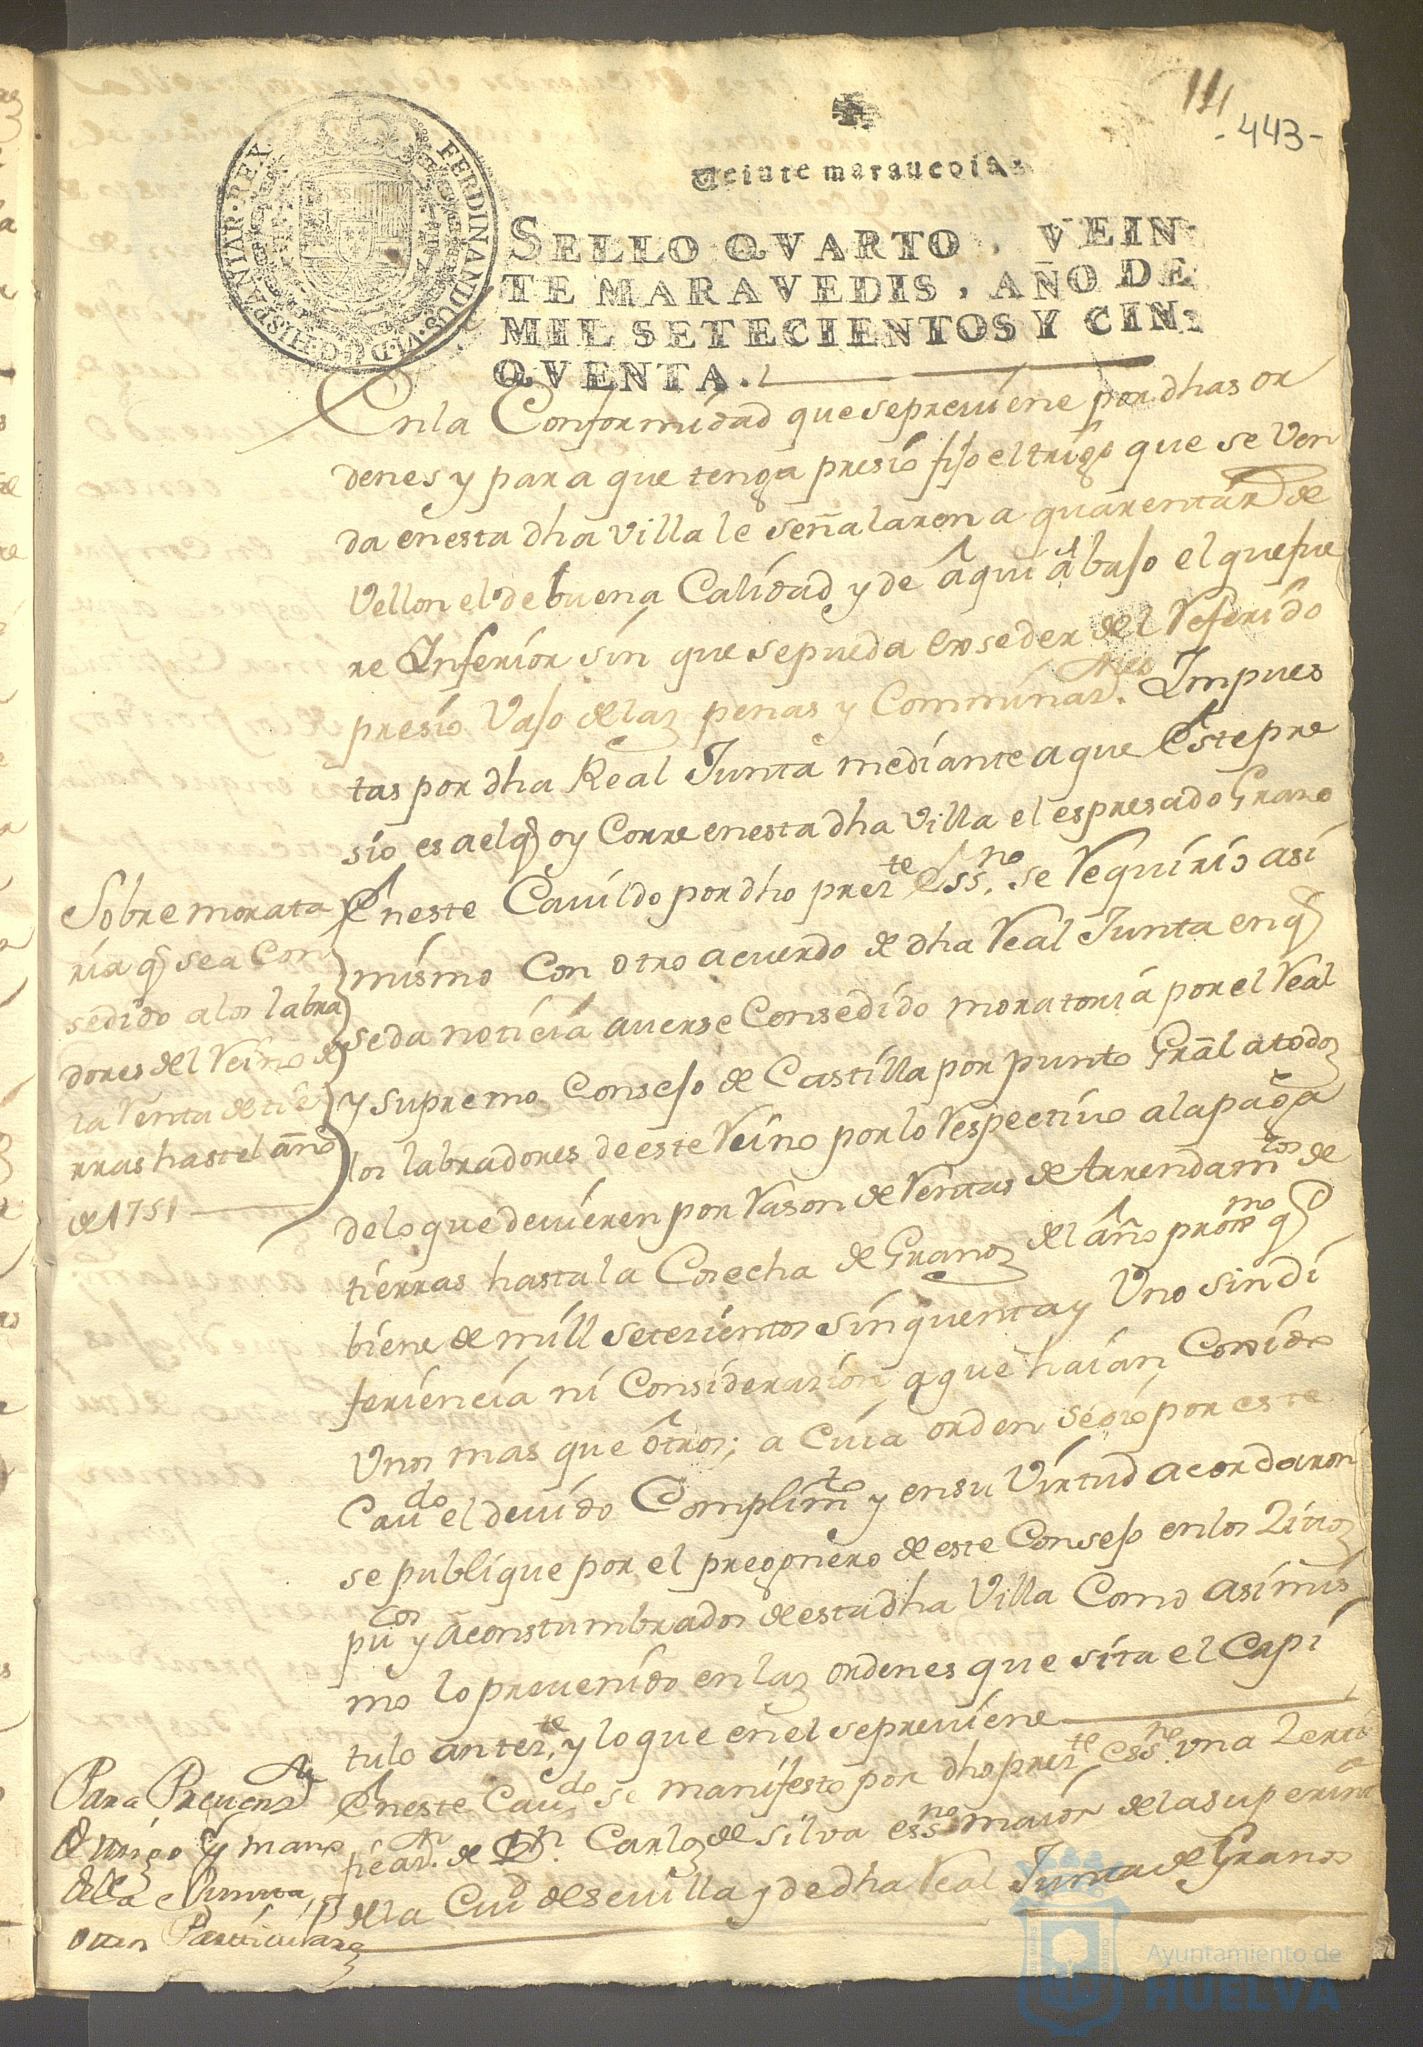 111
-443-
Veinte marauedis
FERDINANDUS·VI·D·G·HISPANIAR·REX
SELLO QVARTO, VEIN-
TE MARAVEDIS, AÑO DE
MIL SETECIENTOS Y CIN-
QVENTA.
En la Conformidad que se preuiene por dhas or
denes y para que tenga presio fijo el trigo que se Ven
da en esta dha villa le señalaron a quarenta rs de
Vellon el de buena Calidad y de aqui abajo el que fue
re Inferior sin que se pueda exseder del Referido
presio Vajo de las penas y Comminasnes Impues
tas por dha Real Junta mediante a que Este pre
sio es a el q oy Corre en esta dha Villa el espresado Grano
Sobre morato
ria q se a Con
sedido a los labra
dores del Reino de
la Renta de tie
rras hasta el año
de 1751
En este Cauildo por dho preste Essno se Requirio asi
mismo Con otro acuerdo de dha Real Junta en q
se da noticia auerse Consedido moratoria por el Real
y Supremo Consejo de Castilla por punto Gral a todos
los labradores de este Reino por lo Respectiuo a la paga
de lo que deuieren por Rason de Rentas de Arrendamtos de
tierras hasta la Cosecha de Granos del año proxmo q
biene de mill setesientos sinquenta y Uno sin di
feriencia ni Considerasion a que haian Cojido
Unos mas que otros; a Cuia orden se dio por este
Caudo el deuido Complimto y en su Virtud acordaron
se publique por el pregonero de este Consejo en los Sitios
pucos y aconstumbrados de esta dha Villa Como asimis
mo lo preuenido en las ordenes que sita el Capi
tulo anterte, y lo que en el se preuiene
Para Preuensn
de trigo y mano
de la Junta
otros Particulares
En este Caudo se manifesto por dho preste essno una Serti
ficasn de Dn. Carlos de Silva essno maior de la superinta
de la Ciud de Seuilla y de dha Real Junta de Granos
Ayuntamiento de
HUELVA